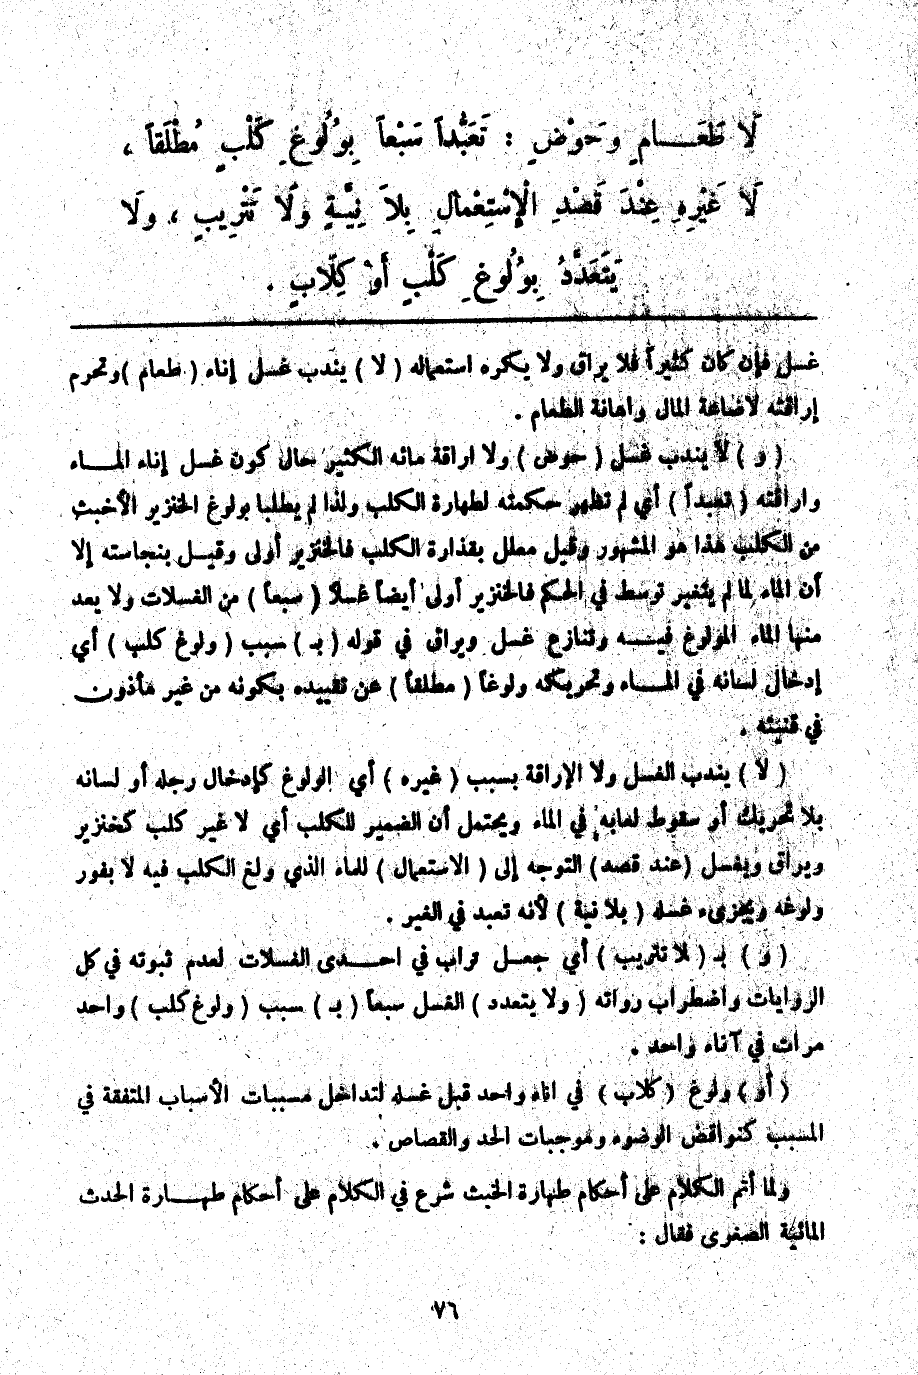 لَا طَعَـــامٍ وَحَوْضٍ : تَعَبُّداً سَبْعاً بِوُلُوغِ كَلْبٍ مُطْلَقاً ،
لَا غَيْرِهِ عِنْدَ قَصْدِ الْإِسْتِعْمالِ بِلاَ نِيَّـةٍ وَلَا تَتْرِيبٍ ، ولَا
يَتَعَدَّدُ بِوُلُوغِ كَلْبٍ أَوْ كِلَابٍ .
غسل فإن كان كثيراً فلا يراق ولا يكره استعماله ( لا ) يندب غسل إناء ( طعام ) وتحرم
إراقته لاضاعة المال واهانة الطعام .
( و ) لا يندب غسل ( حوض ) ولا اراقة مائه الكثير حال كون غسل إناء المـــاء
واراقته ( تعبداً ) أي لم تظهر حكمته لطهارة الكلب ولذا لم يطلبا بولوغ الخنزير الأخبث
من الكلب هذا هو المشهور وقيل معلل بقذارة الكلب فالخنزير أولى وقيـل بنجاسته إلا
أن الماء لما لم يتغير توسط في الحكم فالخنزير أولى أيضاً غسلاً ( سبعاً ) من الغسلات ولا يعد
منها الماء المولوغ فيـــه وتنازع غسل ويراق في قوله ( بـ ) سبب ( ولوغ كلب ) أي
إدخال لسانه في المـــاء وتحريكه ولوغاً ( مطلقاً ) عن تقييده بكونه من غير مأذون
في قنيته .
( لا ) يندب الغسل ولا الإراقة بسبب ( غيره ) أي الولوغ كإدخال رجله أو لسانه
بلا تحريك أو سقوط لعابه في الماء ويحتمل أن الضمير للكلب أي لا غير كلب كخنزير
ويراق ويغسل (عند قصد) التوجه إلى ( الاستعمال ) للماء الذي ولغ الكلب فيه لا بفور
ولوغه ويجزىء غسله ( بلا نية ) لأنه تعبد في الغير .
( و ) بـ ( لا تتريب ) أي جعـل تراب في احـــدى الغسلات لعدم ثبوته في كل
الروايات واضطراب رواته ( ولا يتعدد ) الغسل سبعاً ( بـ ) سبب ( ولوغ كلب ) واحد
مرات في آناء واحد .
( أو ) ولوغ ( كلاب ) في اناء واحد قبل غسله لتداخل مسببات الأسباب المتفقة في
المسبب كنواقض الوضوء وموجبات الحد والقصاص .
ولما أتم الكلام على أحكام طهارة الخبث شرع في الكلام على أحكام طهـــارة الحدث
المائية الصغرى فقال :
٧٦